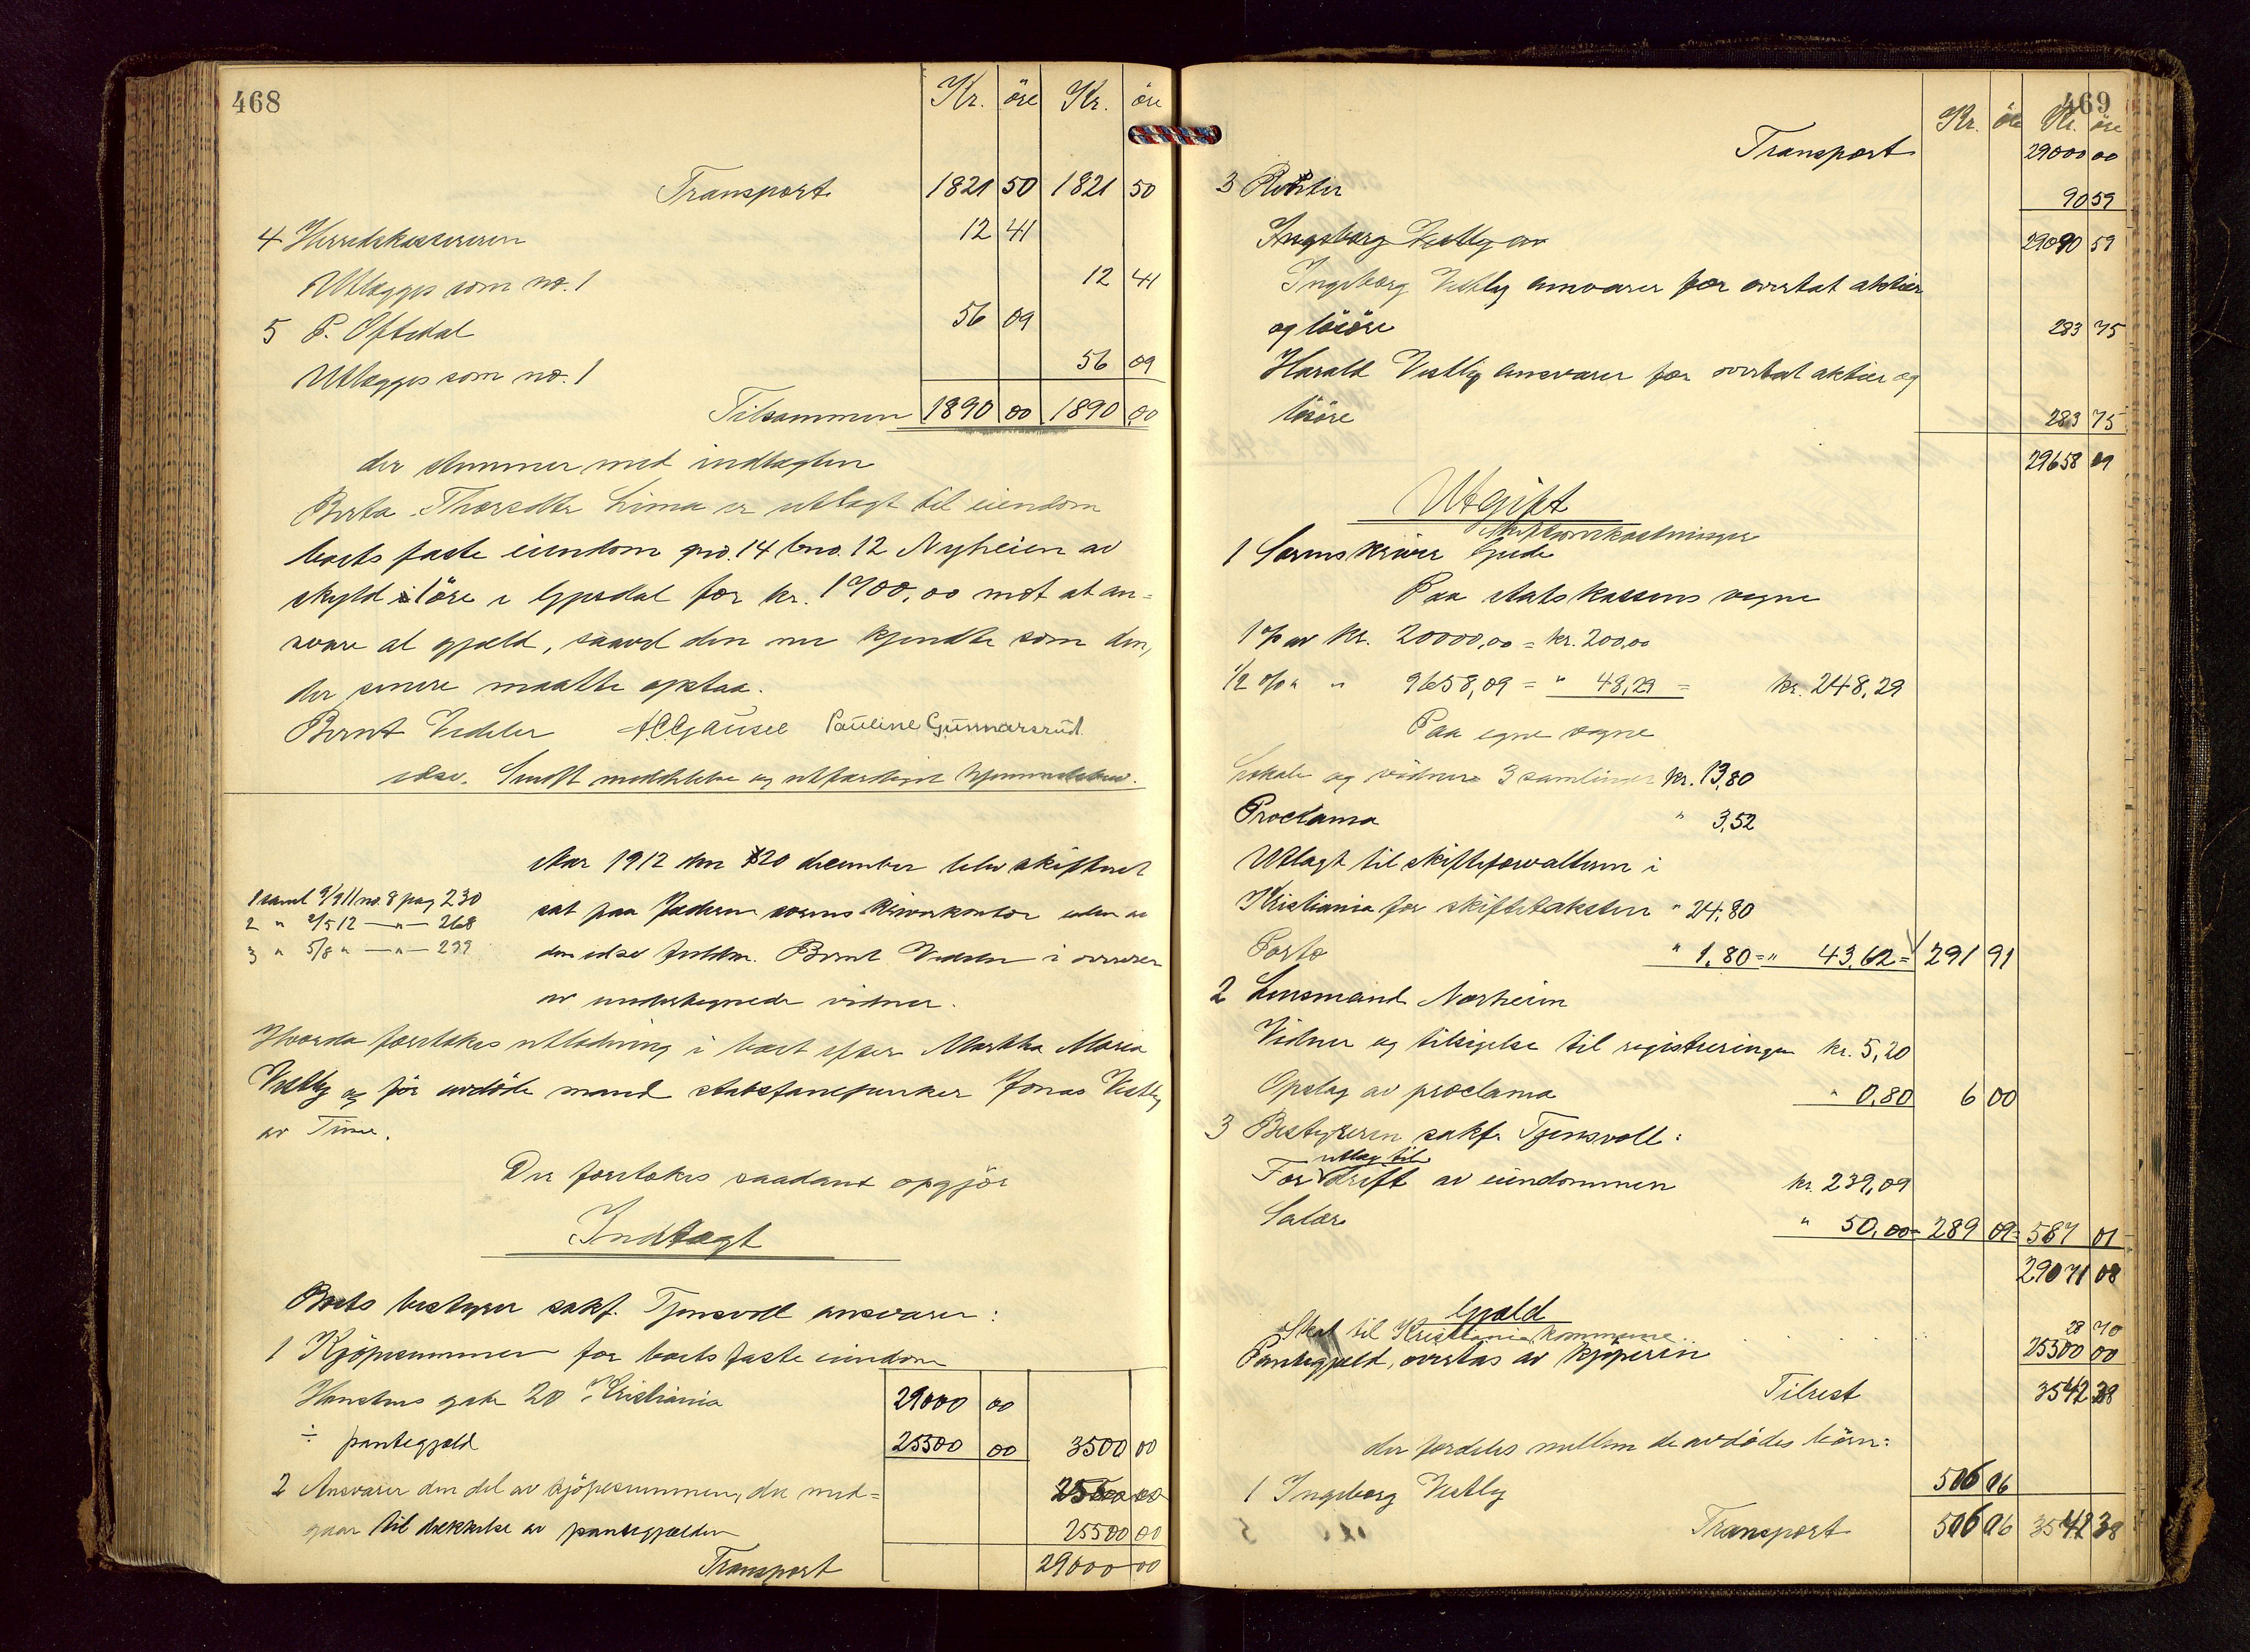 468
Kr. öre Kr. öre
Transport 1821 50 1821 50
4 Herredskassereren 12 41
Utlægges som no. 1 12 41
5 P. Oftedal 56 09
Utlægges som no. 1 56 09
Tilsammen 1890 00 1890 00
der stemmer med indtægten
Berta Thorsdtr Lima er utlagt til eiendom
boets faste eiendom gno. 14 bno. 12 Nyheien av
skyld 1 öre i Gjesdal for kr. 1700,00 mot at an=
svare al gjæld, saavel den nu kjendte som den,
der senere maatte opstaa.
Bernt Vedeler A.C. Gausel Pauline Gunnarsrud
edsv. Sendt meddelelse og utfærdiget hjemmelsbrev.
Aar 1912 den 20 december blev skifteret
sat paa Jæderen sorenskriverkontor
den edsv fuldm. Bernt Vedeler i overvær
av undertegnede vidner.
1 saml 9/9 11 no. 8 pag 230
2 " 2/5 12 — " — 268
3 " 5/8 " — " — 299
Hvorda foretokes utlodning i boet efter Martha Maria
Vestly og för avdöde mand Jonas Vestly
av Time.
Der foretokes saadant opgjör
Indtægt
Boets bestyrer sakf. Tjensvoll ansvarer:
1 Kjöpesummen for boets faste eiendom
gate 20 i Kristiania 29000 00
÷ pantegjæld 25500 00 3500 00
2 Ansvarer den del av kjöpesummen, der med= 25500 00
gaar til dækkelse av pantegjælden 25500 00
Transport 29000 00
469
Kr. öre Kr. öre
Transport 29000 00
3 Renter 90 59
Ingeborg Vestly an 29090 59
Ingeborg Vestly ansvarer for overtat aktier
og lösöre 283 75
Harald Vestly ansvarer for overtat aktier og
lösöre 283 75
29658 09
Utgift
Skifteomkostninger
1 Sorenskriver Gjede
Paa statskassens vegne
1 % av kr. 20000,00 = kr. 200,00
1/2 % " " 9658,09 = " 48,29 = kr. 248,29
Paa egne vegne
Lokale og vidner 3 samlinger kr. 13,80
Proclama " 3,52
Utlagt til skifteforvalteren i
Kristiania for skiftetaksten " 24,80
Porto " 1,80 = " 43,62 = 291 91
2 Lensmand Norheim
Vidner og tilsigelse til registreringen kr. 5,20
Opslag av proclama " 0,80 6 00
3 Bestyreren sakf. Tjensvoll:
utlæg til
For drift av eiendommen kr. 239,09
Salær " 50,00 = 289 09 = 587 01
29071 08
Gjæld
Skat til Kristiania kommune 28 70
Pantegjæld, overtas av kjöperen 25500 00
Tilrest 3542 38
der fordeles mellem de avdödes börn:
1 Ingeborg Vestly 506 06
Transport 506 06 3542 38